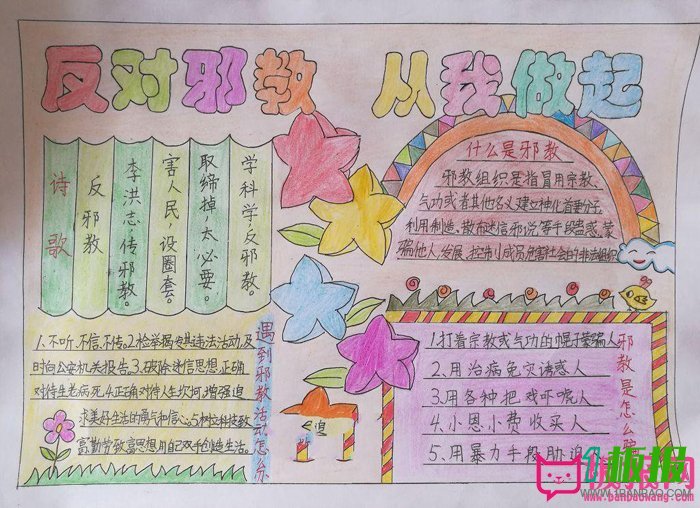 反对邪教 从我做起
诗歌
反邪教
李洪志,传邪教。
害人民,设圈套。
取缔掉,太必要。
学科学,反邪教。
什么是邪教
邪教组织是指冒用宗教、
气功或者其他名义建立神化首要分子,
利用制造、散布迷信邪说等手段蛊惑、蒙
骗他人,发展、控制成员危害社会的非法组织
遇到邪教活动怎么
1、不听、不信、不传。2、检举揭发其违法活动,及
时向公安机关报告。3、破除迷信思想,正确
对待生老病死。4、正确对待人生坎坷,增强追
求美好生活的勇气和信心。5、树立科技致
富勤劳致富思想,用自己双手创造生活。
邪教是怎么骗
1、打着宗教或气功的幌子蒙骗人
2、用治病免灾诱惑人
3、用各种把戏吓唬人
4、小恩小费收买人
5、用暴力手段胁迫
板报
WWW.1BANBAO.COM
板报网
www.banbaowang.com